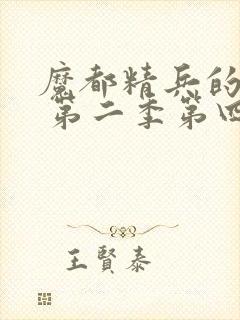 魔都精兵的
第二季第四
王賢泰